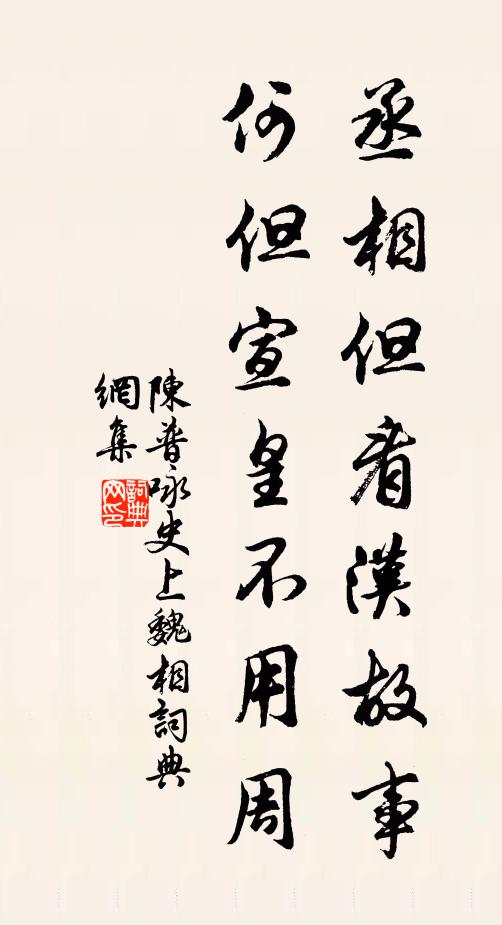 丞相但看漢故事
何但宣皇不用周
陳普咏史上魏相詞典
網集
詞典
网印